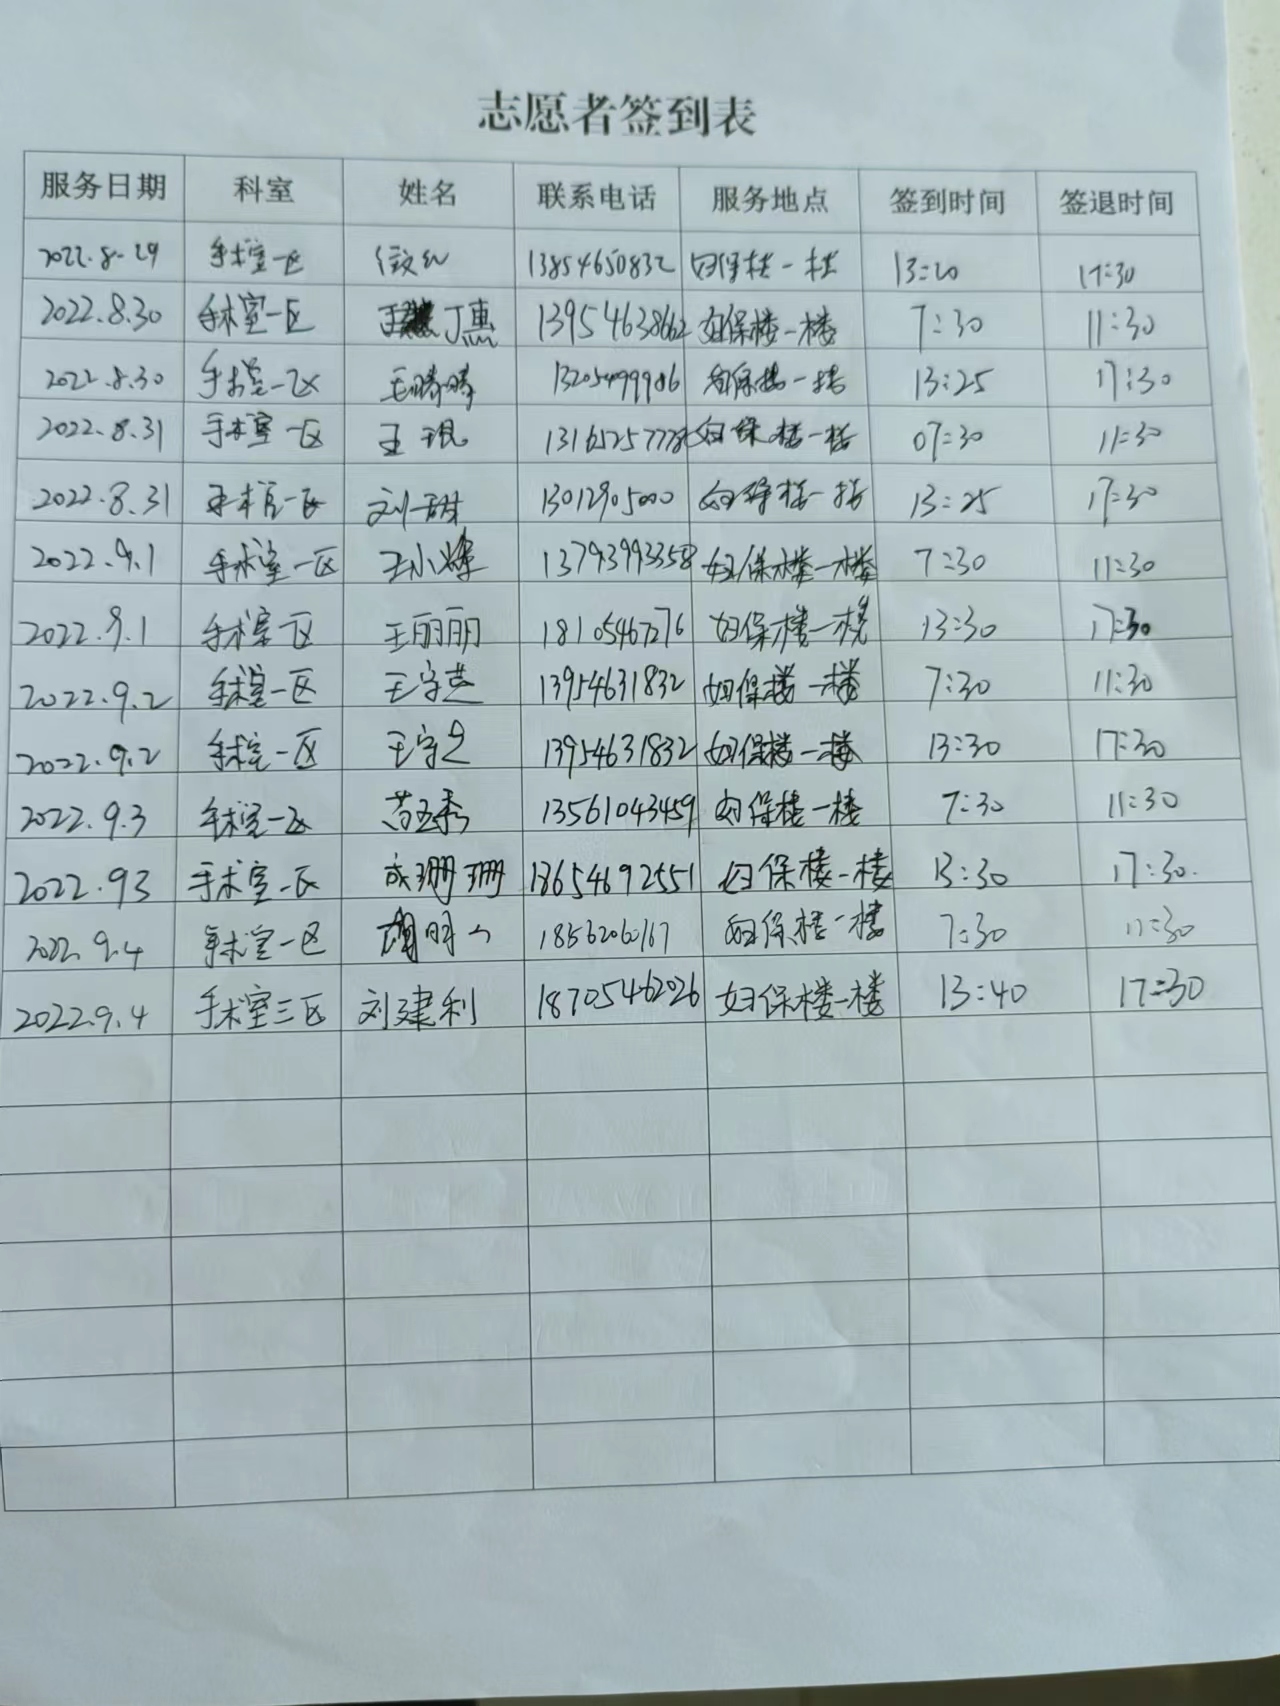 志愿者签到表
服务日期 科室 姓名 联系电话 服务地点 签到时间 签退时间
2022.8.29 手术室一区 13854650832 妇保楼一楼 13:20 17:30
2022.8.30 手术室一区 丁惠 13954638662 妇保楼一楼 7:30 11:30
2022.8.30 手术室一区 王腾腾 13205499986 妇保楼一楼 13:25 17:30
2022.8.31 手术室一区 王琨 13165257778 妇保楼一楼 07:30 11:30
2022.8.31 手术室一区 刘甜 13012905000 妇保楼一楼 13:25 17:30
2022.9.1 手术室一区 王小烽 13793993358 妇保楼一楼 7:30 11:30
2022.9.1 手术室一区 王丽丽 18105467276 妇保楼一楼 13:30 17:30
2022.9.2 手术室一区 王守芝 13954631832 妇保楼一楼 7:30 11:30
2022.9.2 手术室一区 王守芝 13954631832 妇保楼一楼 13:30 17:30
2022.9.3 手术室一区 苟玉秀 13561043459 妇保楼一楼 7:30 11:30
2022.93 手术室一区 成珊珊 18654692551 妇保楼一楼 13:30 17:30.
2022.9.4 手术室一区 18562060167 妇保楼一楼 7:30 11:30
2022.9.4 手术室三区 刘建利 18705462026 妇保楼一楼 13:40 17:30